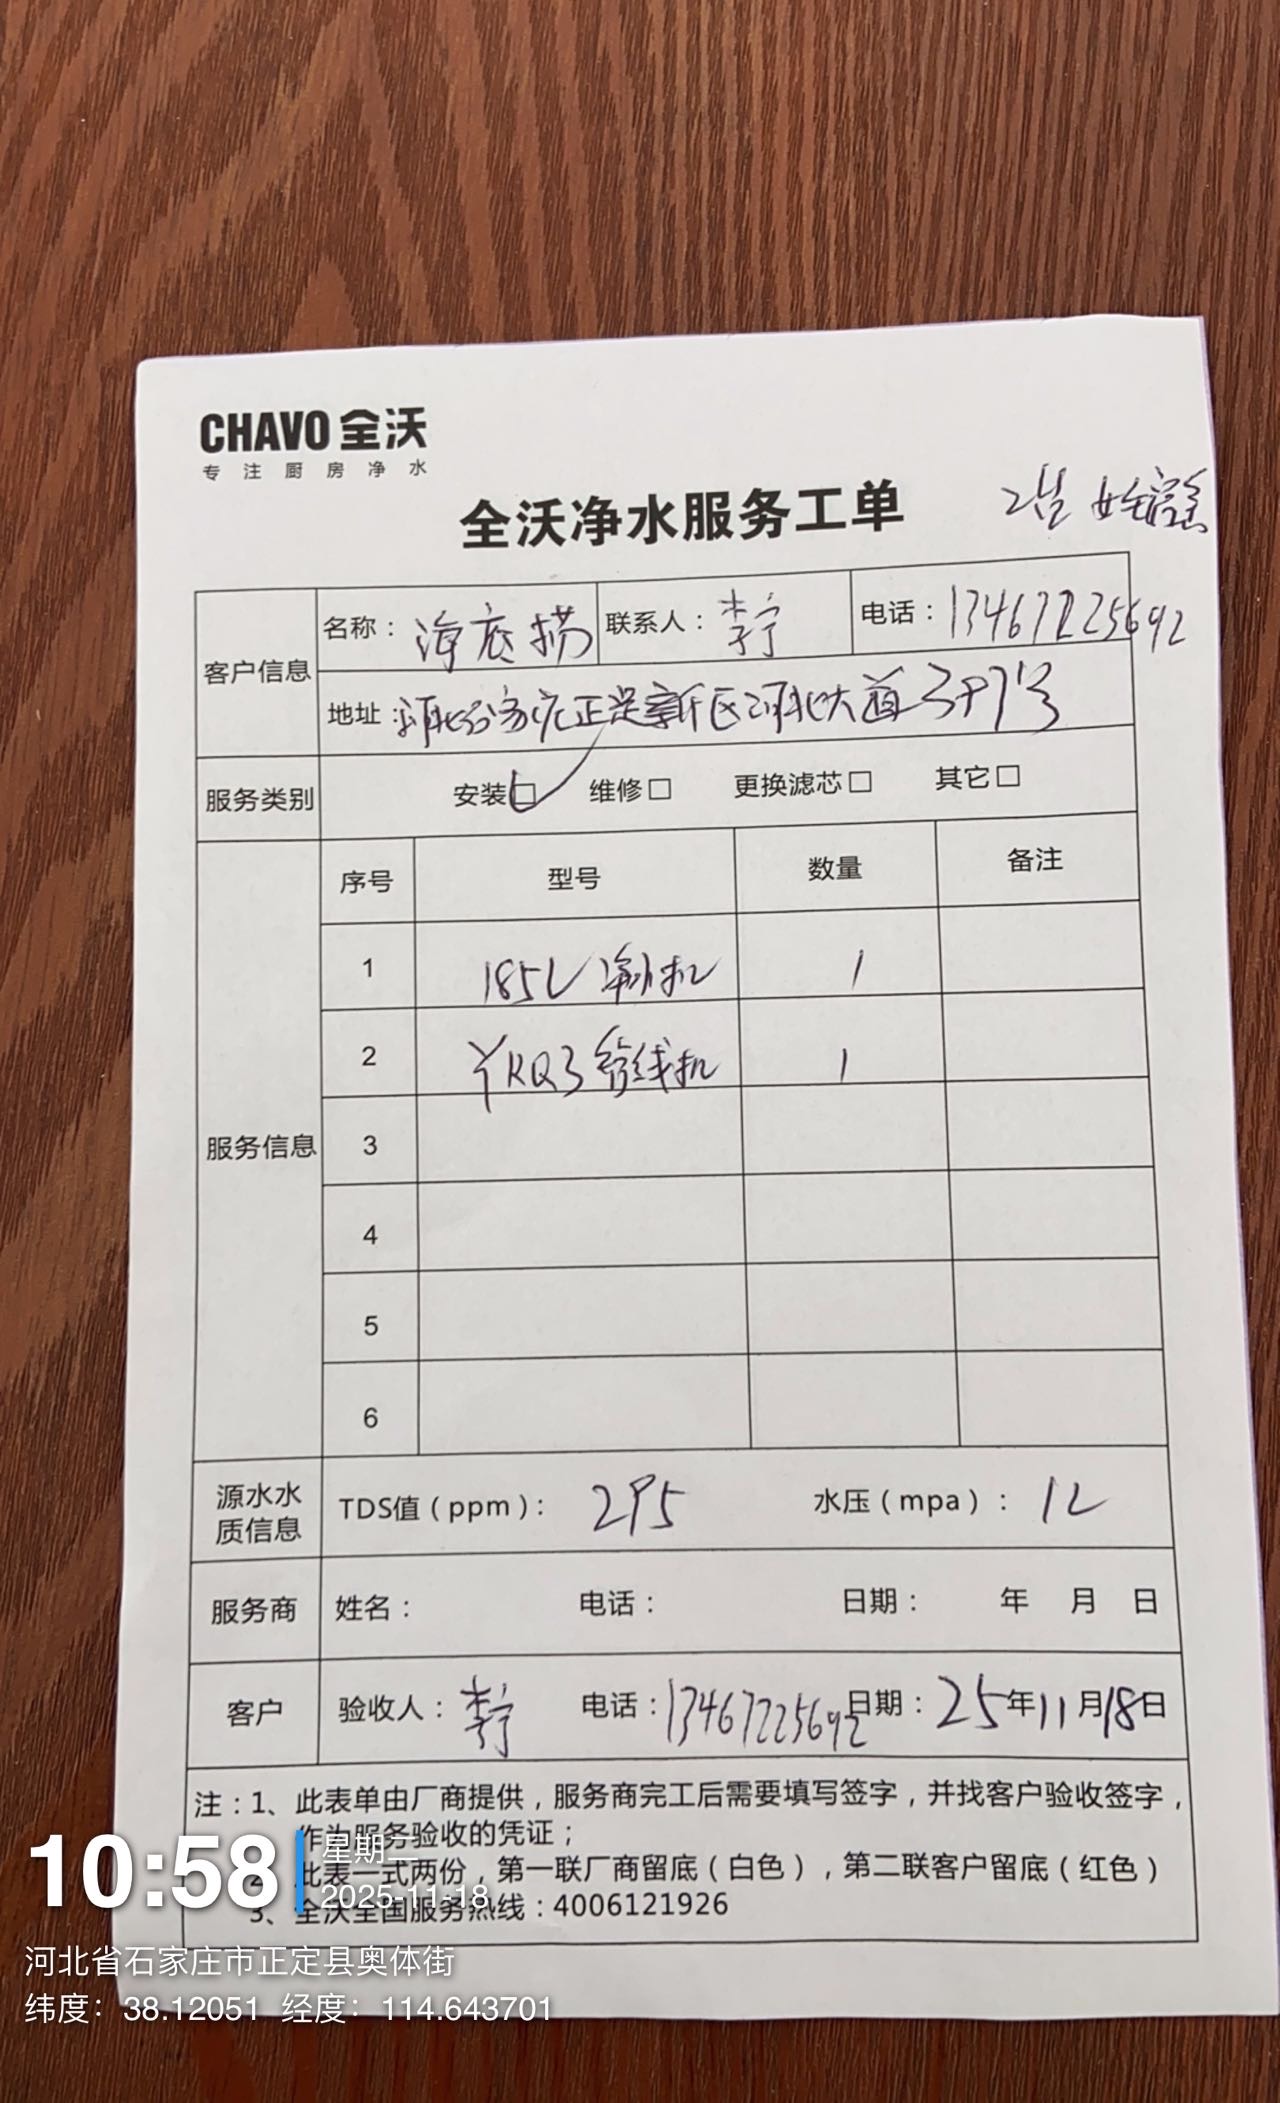 CHAVO 全沃
专注厨房净水
全沃净水服务工单
客户信息
名称：海底捞 联系人：李宁 电话：13467225692
地址：河北石家庄正定新区河北大道397号
服务类别 安装□ 维修□ 更换滤芯□ 其它□
服务信息
序号 型号 数量 备注
1 185L 净水机 1
2 YRQ3 管线机 1
3
4
5
6
源水水质信息 TDS值（ppm）：295 水压（mpa）：12
服务商 姓名： 电话： 日期： 年 月 日
客户 验收人：李宁 电话：13467225692 日期：25年11月18日
注：1、此表单由厂商提供，服务商完工后需要填写签字，并找客户验收签字，
作为服务验收的凭证；
2、此表一式两份，第一联厂商留底（白色），第二联客户留底（红色）
3、全沃全国服务热线：4006121926
10:58
星期二
2025-11-18
河北省石家庄市正定县奥体街
纬度：38.12051 经度：114.643701